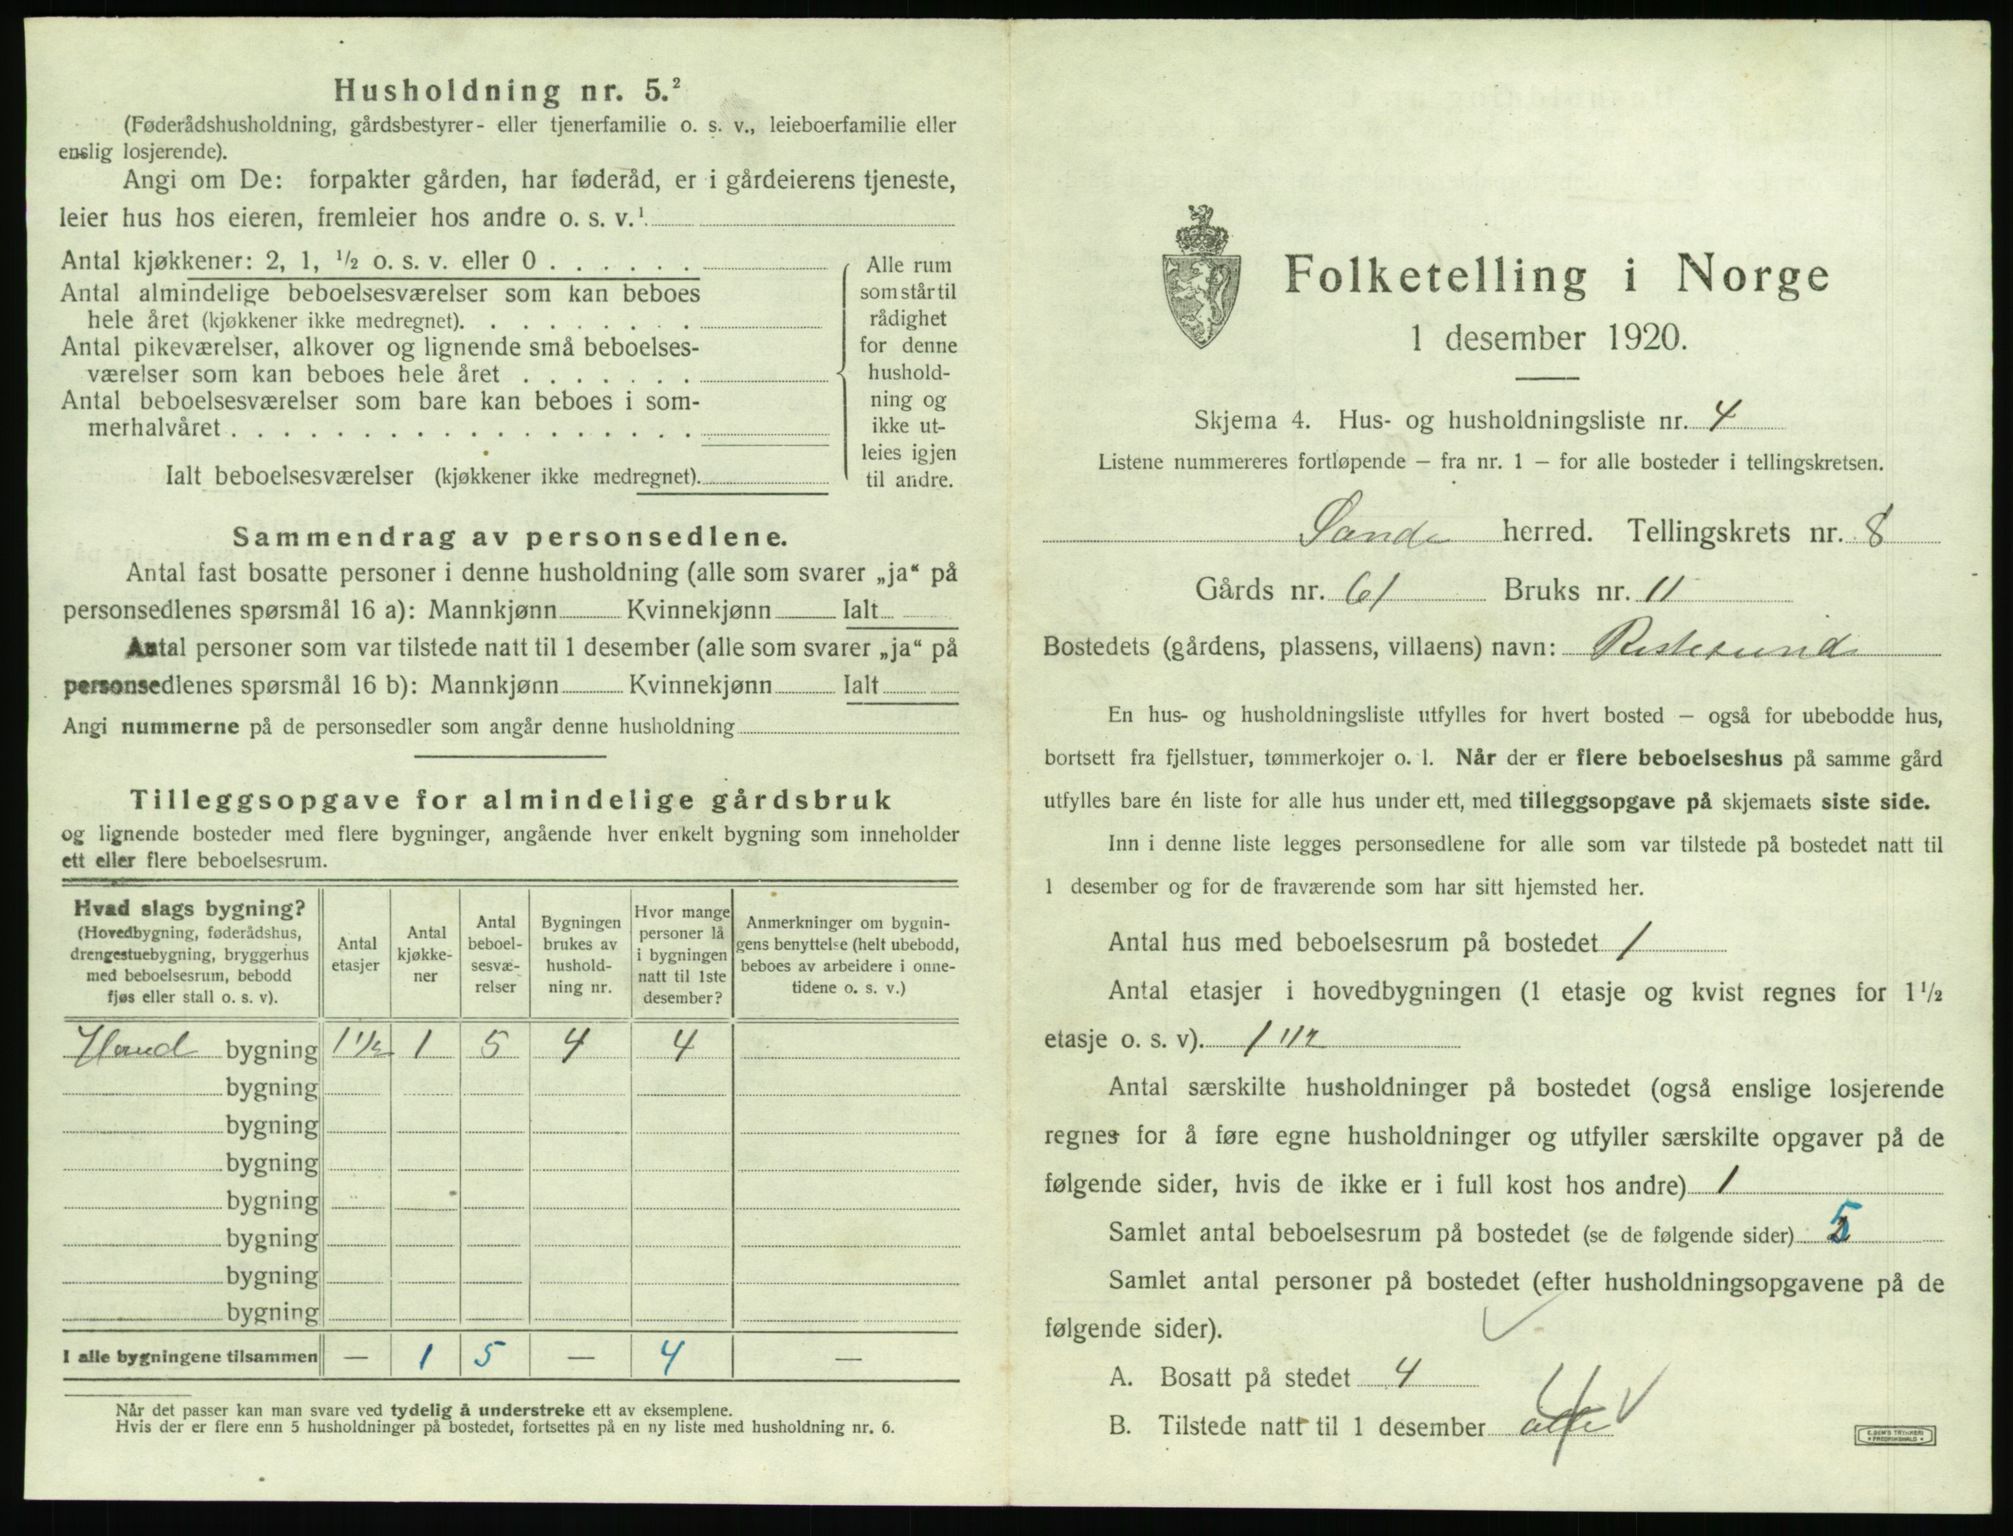 Husholdning nr. 5.²
(Føderådshusholdning, gårdsbestyrer- eller tjenerfamilie o. s. v., leieboerfamilie eller
enslig losjerende).
Angi om De: forpakter gården, har føderåd, er i gårdeierens tjeneste,
leier hus hos eieren, fremleier hos andre o. s. v.¹
Antal kjøkkener: 2, 1, ½ o. s. v. eller 0 . . . . . .
Antal almindelige beboelsesværelser som kan beboes
hele året (kjøkkener ikke medregnet). . . . . . . . .
Antal pikeværelser, alkover og lignende små beboelses-
værelser som kan beboes hele året . . . . . . .
Antal beboelsesværelser som bare kan beboes i som-
merhalvåret . . . . . . . . . . . . . . . . . .
Ialt beboelsesværelser (kjøkkener ikke medregnet).
Alle rum
som står til
rådighet
for denne
hushold-
ning og
ikke ut-
leies igjen
til andre.
Sammendrag av personsedlene.
Antal fast bosatte personer i denne husholdning (alle som svarer „ja“ på
personsedlenes spørsmål 16 a): Mannkjønn Kvinnekjønn Ialt
Antal personer som var tilstede natt til 1 desember (alle som svarer „ja“ på
personsedlenes spørsmål 16 b): Mannkjønn Kvinnekjønn Ialt
Angi nummerne på de personsedler som angår denne husholdning
Tilleggsopgave for almindelige gårdsbruk
og lignende bosteder med flere bygninger, angående hver enkelt bygning som inneholder
ett eller flere beboelsesrum.
Hvad slags bygning?
(Hovedbygning, føderådshus,
drengestuebygning, bryggerhus
med beboelsesrum, bebodd
fjøs eller stall o. s. v).
Antal
etasjer
Antal
kjøkke-
ner
Antal
beboel-
sesvæ-
relser
Bygningen
brukes av
hushold-
ning nr.
Hvor mange
personer lå
i bygningen
natt til 1ste
desember?
Anmerkninger om bygnin-
gens benyttelse (helt ubebodd,
beboes av arbeidere i onne-
tidene o. s. v.)
Hoved bygning 1 1/2 1 5 4 4
bygning
bygning
bygning
bygning
bygning
bygning
bygning
I alle bygningene tilsammen — 1 5 — 4 —
Når det passer kan man svare ved tydelig å understreke ett av eksemplene.
Hvis der er flere enn 5 husholdninger på bostedet, fortsettes på en ny liste med husholdning nr. 6.
Folketelling i Norge
1 desember 1920.
Skjema 4. Hus- og husholdningsliste nr. 4
Listene nummereres fortløpende – fra nr. 1 – for alle bosteder i tellingskretsen.
Sande herred. Tellingskrets nr. 8
Gårds nr. 61 Bruks nr. 11
Bostedets (gårdens, plassens, villaens) navn: Ristesund
En hus- og husholdningsliste utfylles for hvert bosted – også for ubebodde hus,
bortsett fra fjellstuer, tømmerkojer o. l. Når der er flere beboelseshus på samme gård
utfylles bare én liste for alle hus under ett, med tilleggsopgave på skjemaets siste side.
Inn i denne liste legges personsedlene for alle som var tilstede på bostedet natt til
1 desember og for de fraværende som har sitt hjemsted her.
Antal hus med beboelsesrum på bostedet 1
Antal etasjer i hovedbygningen (1 etasje og kvist regnes for 1½
etasje o. s. v). 1 1/2
Antal særskilte husholdninger på bostedet (også enslige losjerende
regnes for å føre egne husholdninger og utfyller særskilte opgaver på de
følgende sider, hvis de ikke er i full kost hos andre) 1
Samlet antal beboelsesrum på bostedet (se de følgende sider) 5
Samlet antal personer på bostedet (efter husholdningsopgavene på de
følgende sider).
A. Bosatt på stedet 4
B. Tilstede natt til 1 desember alle 4
E. SEM'S TRYKKERI
FREDRIKSHALD